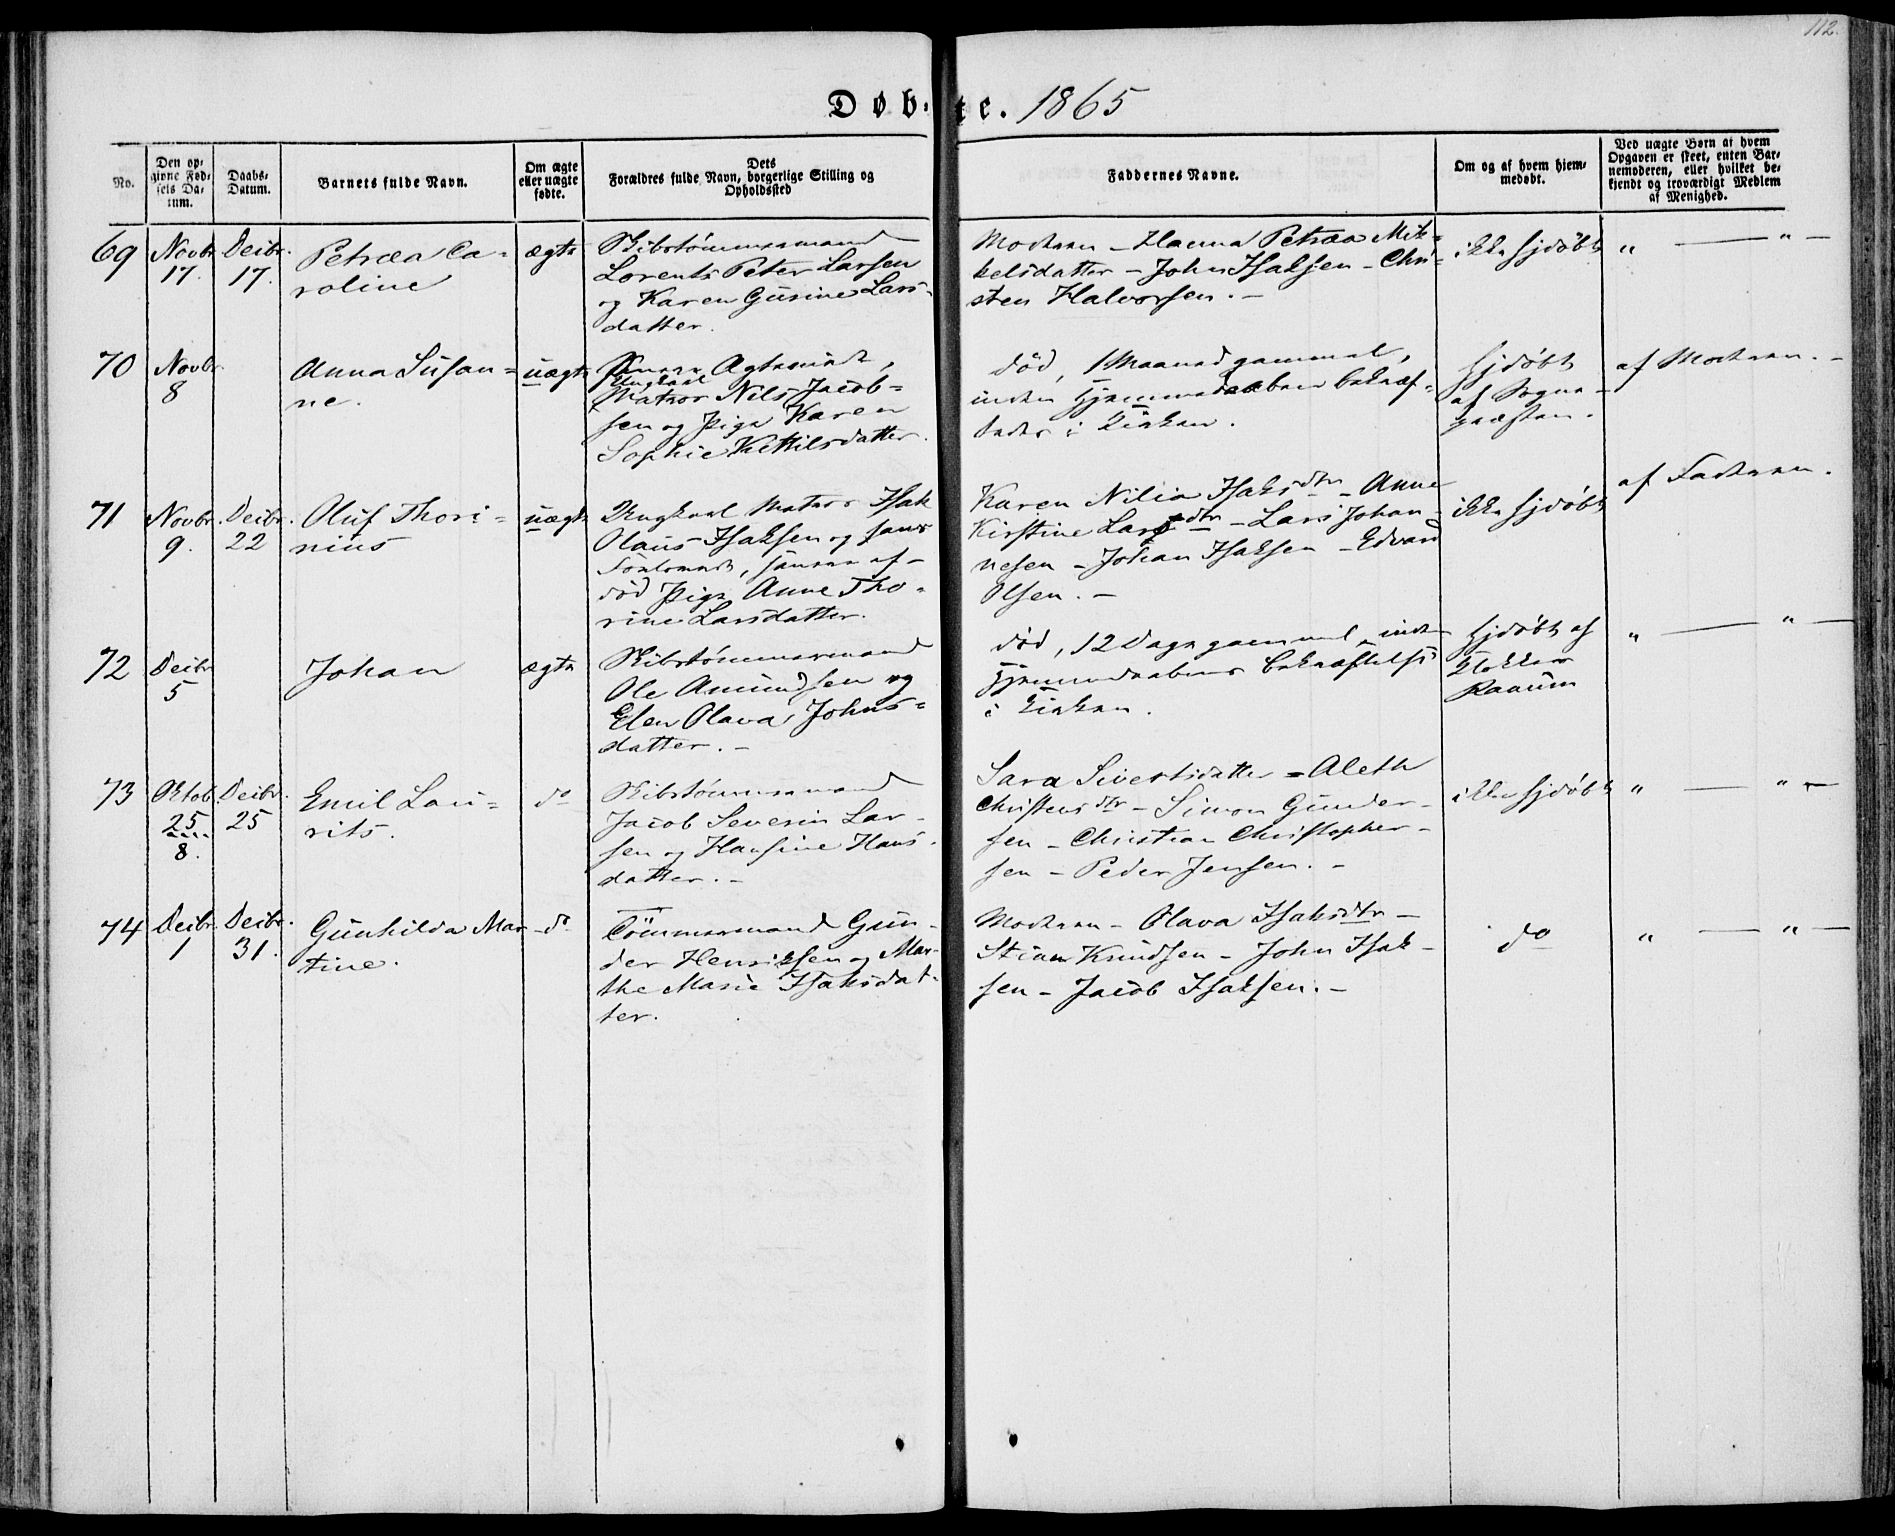 112.
Døbte. 1865
No.
Den op-
givne Fød-
sels Da-
tum.
Daabs-
Datum.
Barnets fulde Navn.
Om ægte
eller uægte
fødte.
Dets
Forældres fulde Navn, borgerlige Stilling og
Opholdssted
Faddernes Navne.
Om og af hvem hjem-
medøbt.
Ved uægte Børn af hvem
Opgaven er skeet, enten Bar-
nemoderen, eller hvilket be-
kjendt og troværdigt Medlem
af Menighed.
69
Novbr
17.
Decbr.
17.
Petræa Ca-
roline
ægte
Skibstømmermand
Lorents Peter Larsen
og Karen Gusine Lars-
datter.
Moderen - Hanna Petræa Mik-
kelsdatter - John Isaksen - Chri-
sten Halvorsen. -
ikke hjdøbt
" — " —
70
Novbr
8
Anna Susan-
ne.
uægte
Ungkarl
Matros Nils Jacob-
sen og Pige Karen
Sophie Kettilsdatter.
død, 1 Maaned gammel,
inden Hjemmedaaben bekræf-
tedes i Kirken.
Hjdøbt
af Sogne-
præsten.
af Moderen. -
71
Novbr
9.
Decbr.
22
Oluf Thori-
nius
uægte
Ungkarl Matros Isak
Olaus Isaksen og hans
Forlovede, senere af-
død Pige Anne Tho-
rine Larsdatter.
Karen Nilia Isaksdtr - Anne
Kirstine Larsdtr - Lars Johan-
nesen - Johan Isaksen - Edvard
Olsen. -
ikke hjdøbt
af Faderen.
72
Decbr
5
Johan
ægte
Skibstømmermand
Ole Amundsen og
Elen Olava Johns-
datter. -
død, 12 Dage gammel, inden
Hjemmedaabens bekræftelse
i Kirken.
Hjdøbt af
Klokker
Raaum
" — " —
73
Oktob.
25
8.
Decbr.
25
Emil Lau-
rits.
do
Skibstømmermand
Jacob Severin Lar-
sen og Hansine Hans-
datter. -
Sara Sivertsdatter - Aleth
Christensdtr - Simon Gunder-
sen - Christian Christopher-
sen - Peder Jensen. -
ikke hjdøbt
" — " —
74
Decbr.
1
Decbr.
31.
Gunhilda Mar-
tine.
do
Tømmermand Gun-
der Henriksen og Mar-
the Marie Isaksdat-
ter.
Moderen - Olava Isaksdtr -
Stian Knudsen - John Isak-
sen - Jacob Isaksen. -
do
" — " —